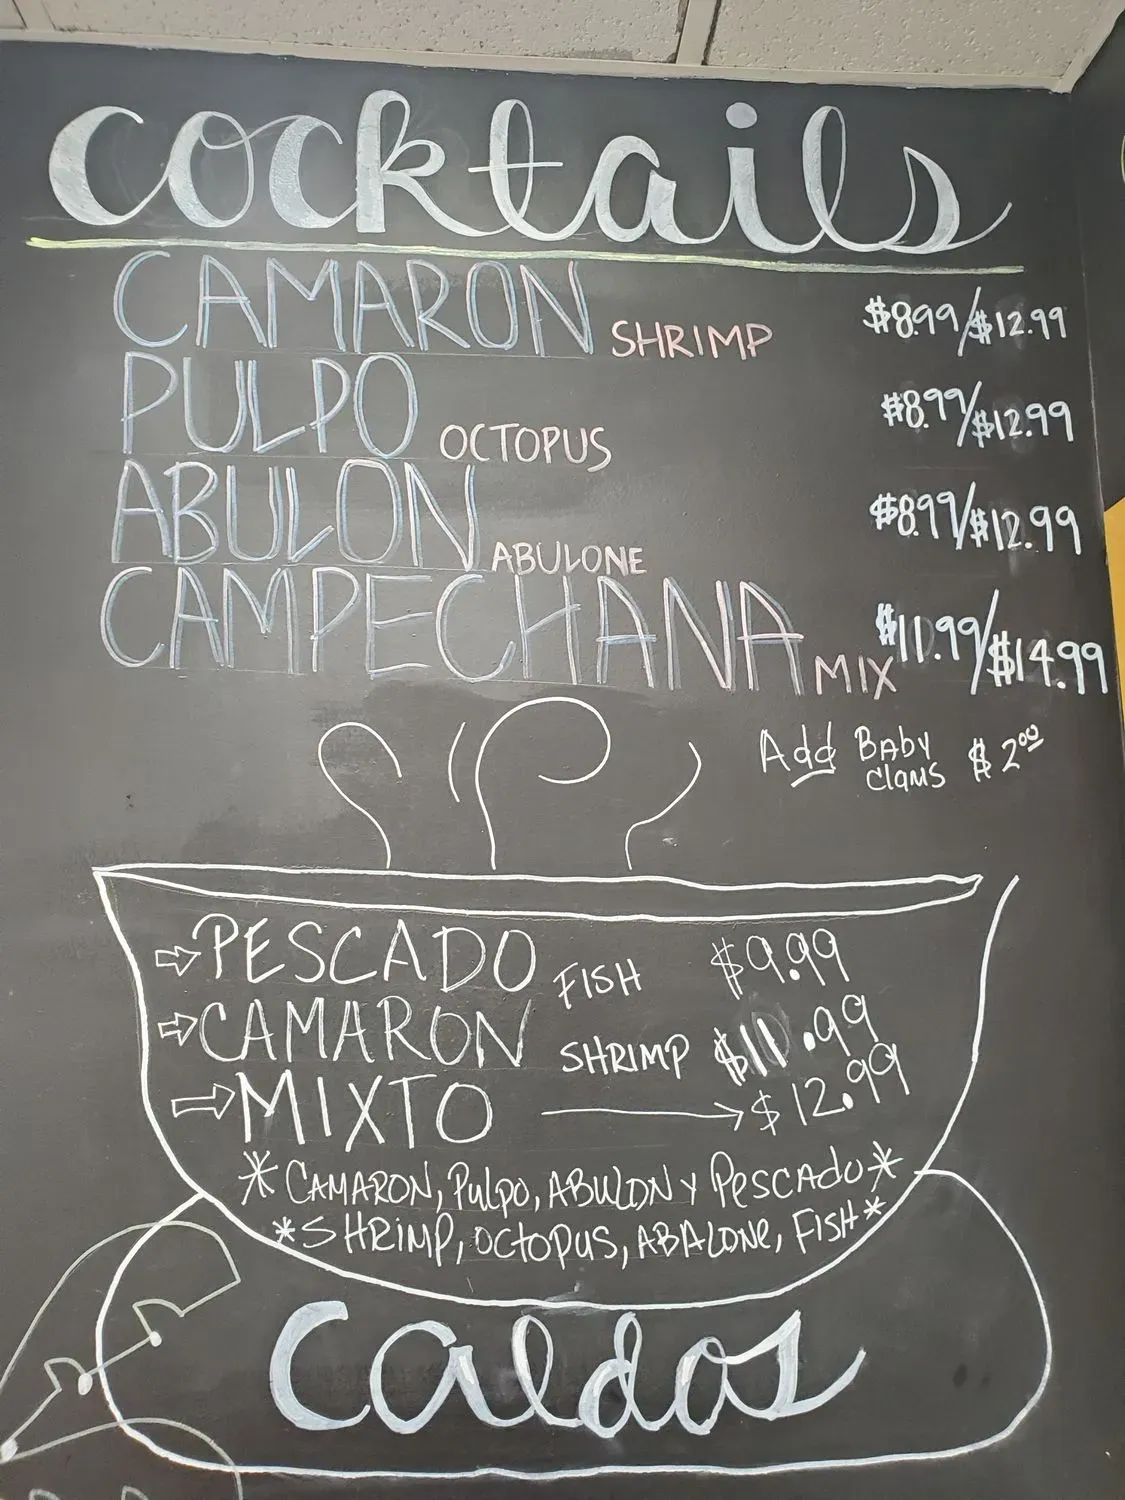 cocktails
CAMARON SHRIMP $8.99/$12.99
PULPO OCTOPUS $8.99/$12.99
ABULON ABULONE $8.99/$12.99
CAMPECHANA MIX $11.99/$14.99
Add BABY clams $2.00
PESCADO FISH $9.99
CAMARON SHRIMP $11.99
MIXTO $12.99
*CAMARON, Pulpo, ABULON Y PESCADO*
*SHRIMP, OCTOPUS, ABALONE, FISH*
Caldos